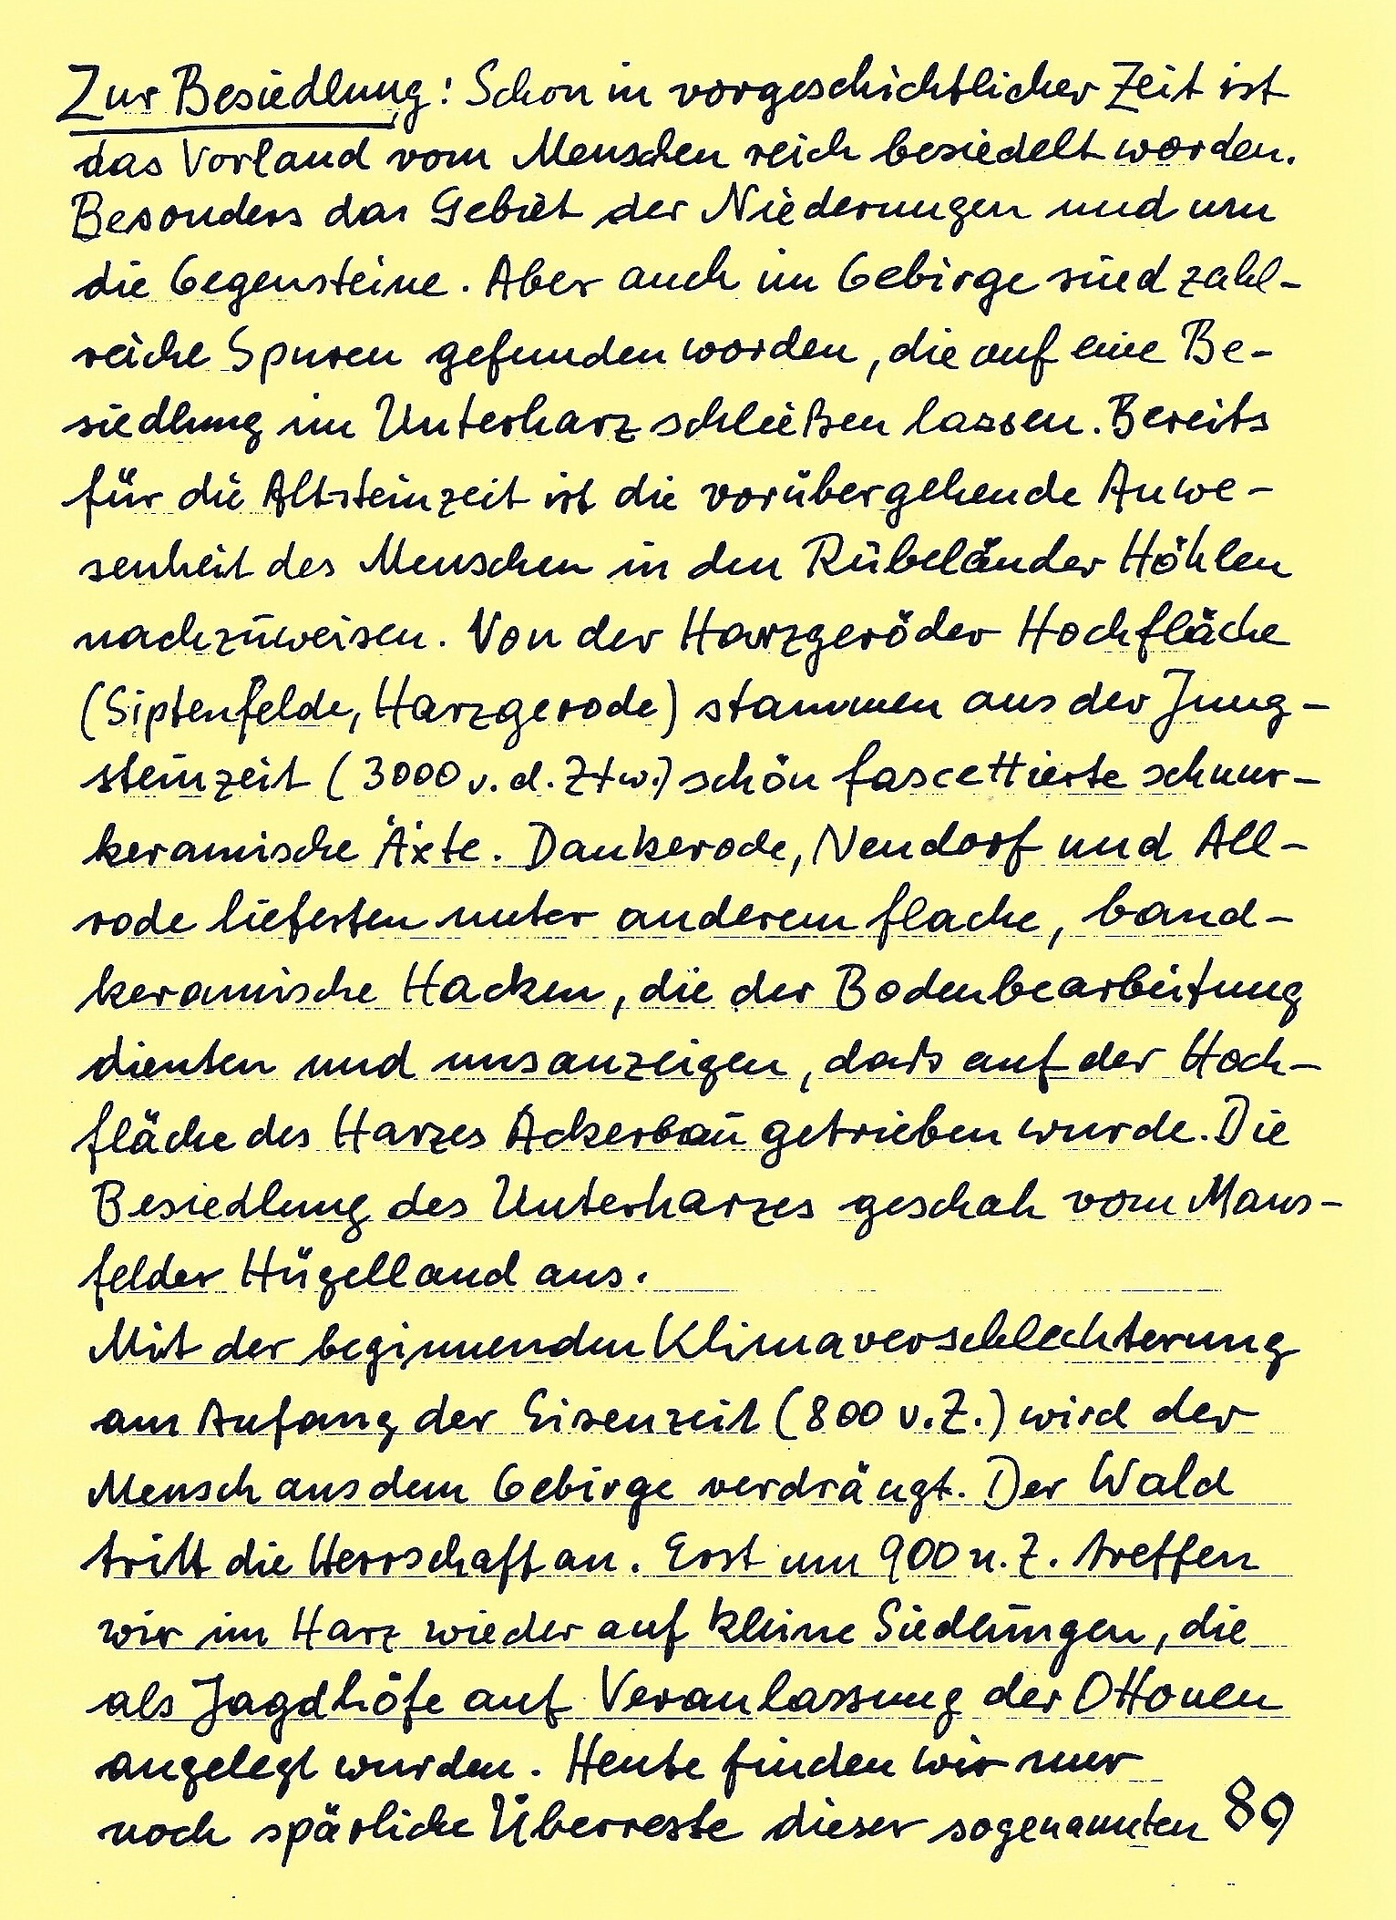 Zur Besiedlung: Schon in vorgeschichtlicher Zeit ist
das Vorland vom Menschen reich besiedelt worden.
Besonders das Gebiet der Niederungen und um
die Gegensteine. Aber auch im Gebirge sind zahl-
reiche Spuren gefunden worden, die auf eine Be-
siedlung im Unterharz schließen lassen. Bereits
für die Altsteinzeit ist die vorübergehende Anwe-
senheit des Menschen in den Rübeländer Höhlen
nachzuweisen. Von der Harzgeröder Hochfläche
(Siptenfelde, Harzgerode) stammen aus der Jung-
steinzeit (3000 v. d. Ztw.) schön fascettierte schnur-
keramische Äxte. Dankerode, Neudorf und All-
rode lieferten unter anderem flache, band-
keramische Hacken, die der Bodenbearbeitung
dienten und uns anzeigen, daß auf der Hoch-
fläche des Harzes Ackerbau getrieben wurde. Die
Besiedlung des Unterharzes geschah vom Mans-
felder Hügelland aus.
Mit der beginnenden Klimaverschlechterung
am Anfang der Eisenzeit (800 v. Z.) wird der
Mensch aus dem Gebirge verdrängt. Der Wald
tritt die Herrschaft an. Erst um 900 n. Z. treffen
wir im Harz wieder auf kleine Siedlungen, die
als Jagdhöfe auf Veranlassung der Ottonen
angelegt wurden. Heute finden wir nur
noch spärliche Überreste dieser sogenannten
89